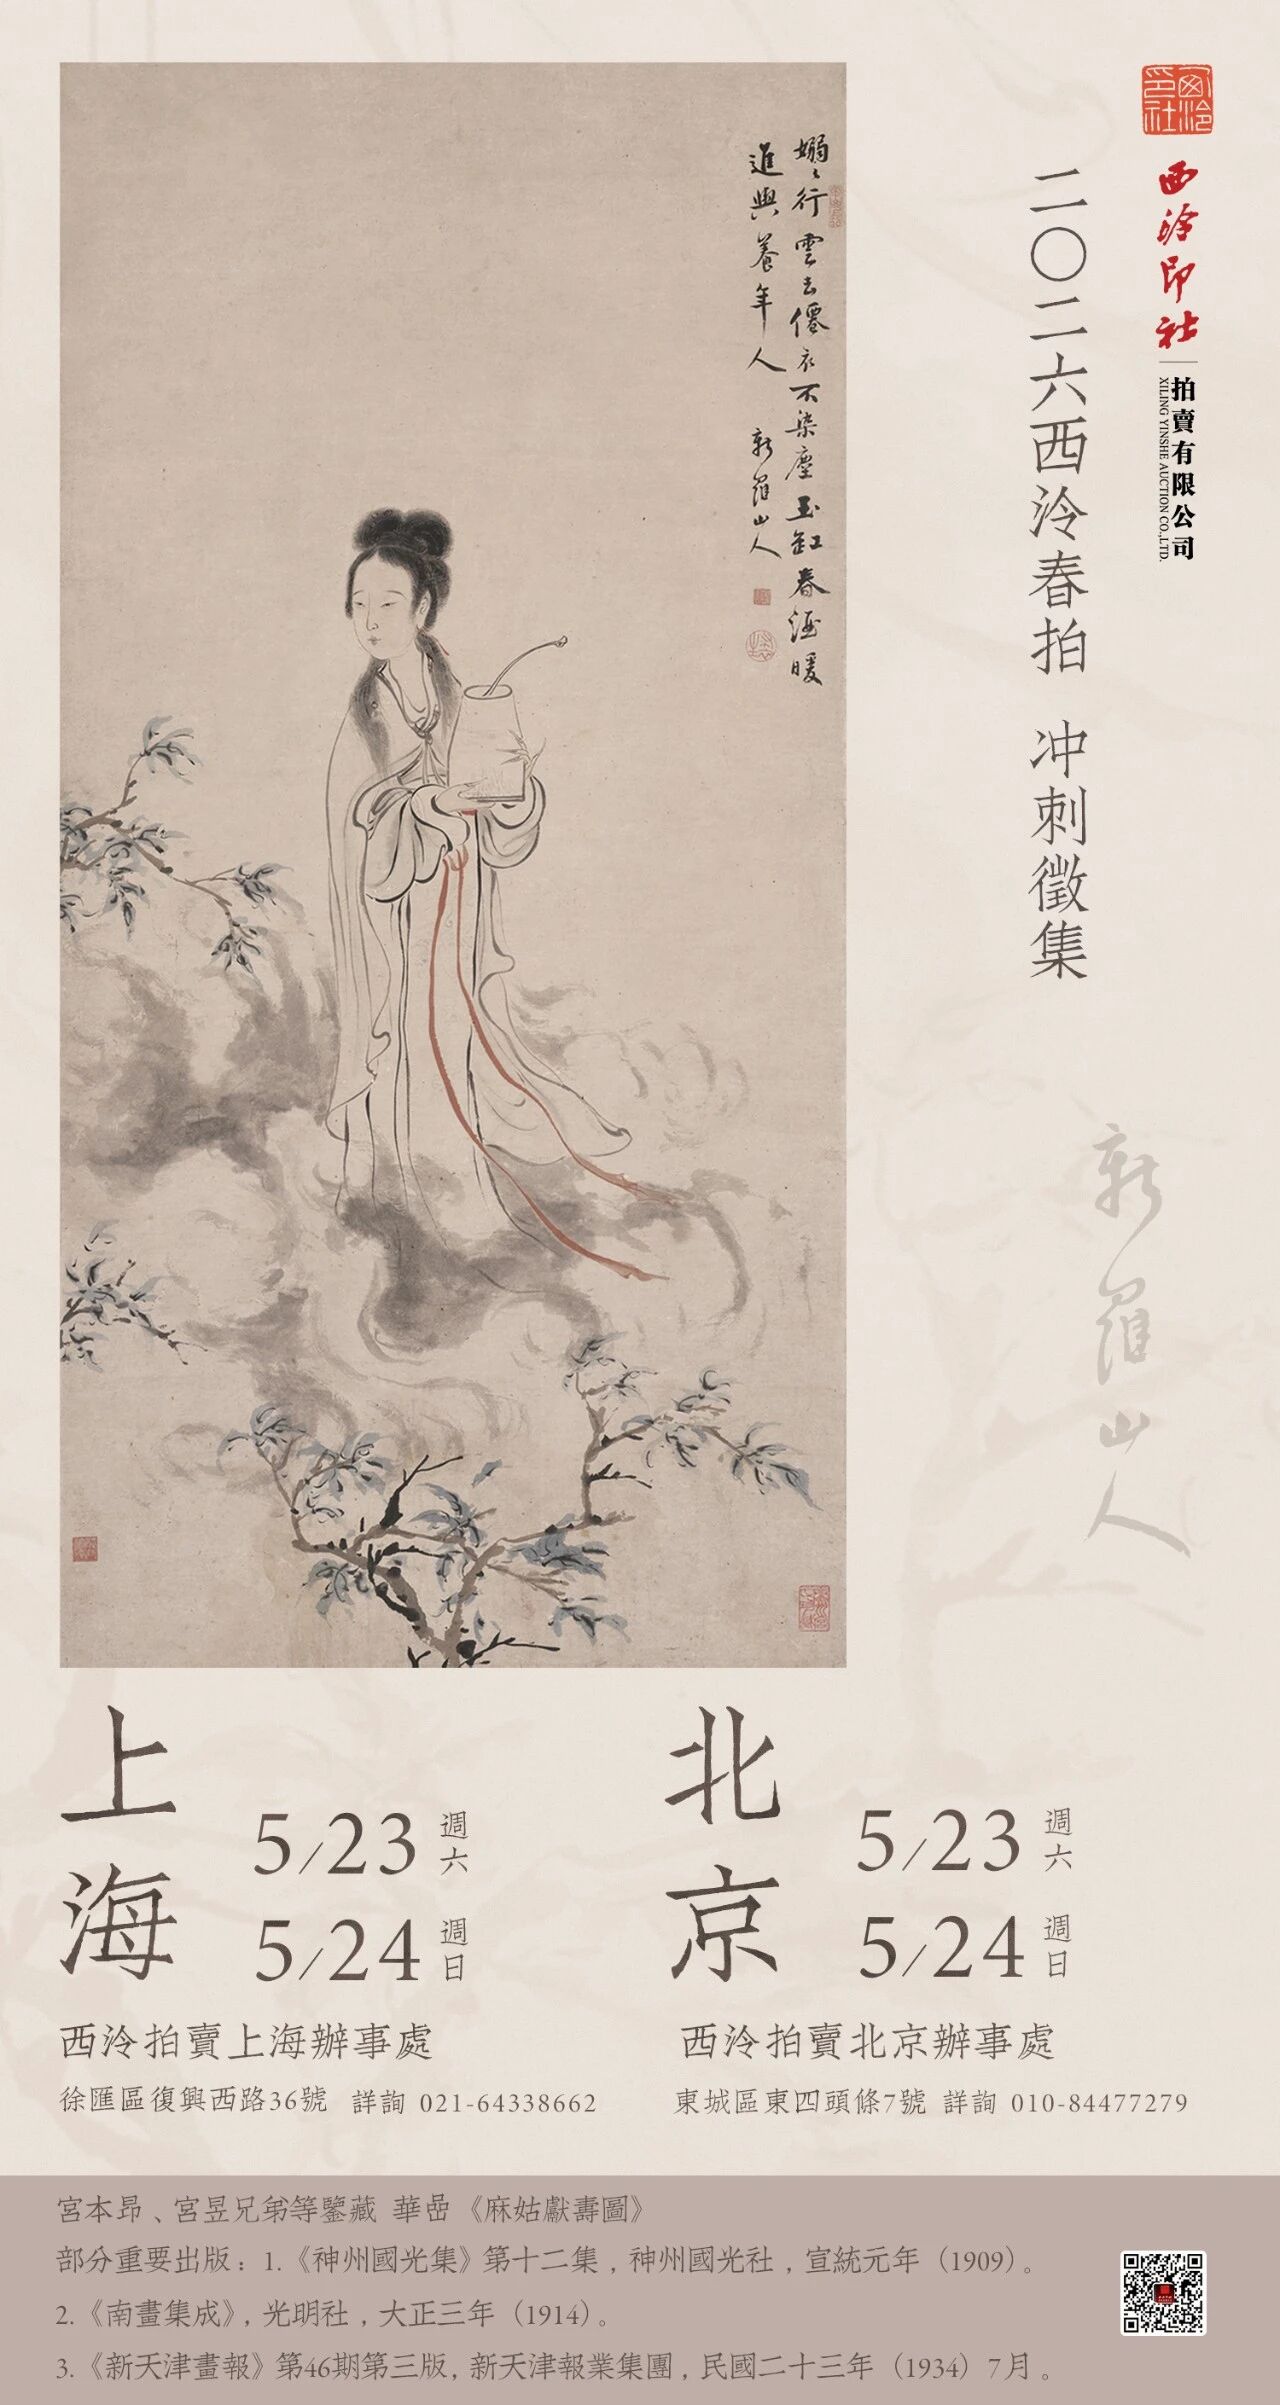 西泠印社
西泠印社
拍賣有限公司
XILING YINSHE AUCTION CO.,LTD.
二〇二六西泠春拍 冲刺徵集
嫋〻行雲去僊衣不染塵玉缸春酒暖
進與養年人 新羅山人
新羅山人
上海
5/23 週六
5/24 週日
西泠拍賣上海辦事處
徐匯區復興西路36號 詳詢 021-64338662
北京
5/23 週六
5/24 週日
西泠拍賣北京辦事處
東城區東四頭條7號 詳詢 010-84477279
宮本昂、宮昱兄弟等鑒藏 華喦《麻姑獻壽圖》
部分重要出版：1.《神州國光集》第十二集，神州國光社，宣統元年（1909）。
2.《南畫集成》，光明社，大正三年（1914）。
3.《新天津畫報》第46期第三版，新天津報業集團，民國二十三年（1934）7月。